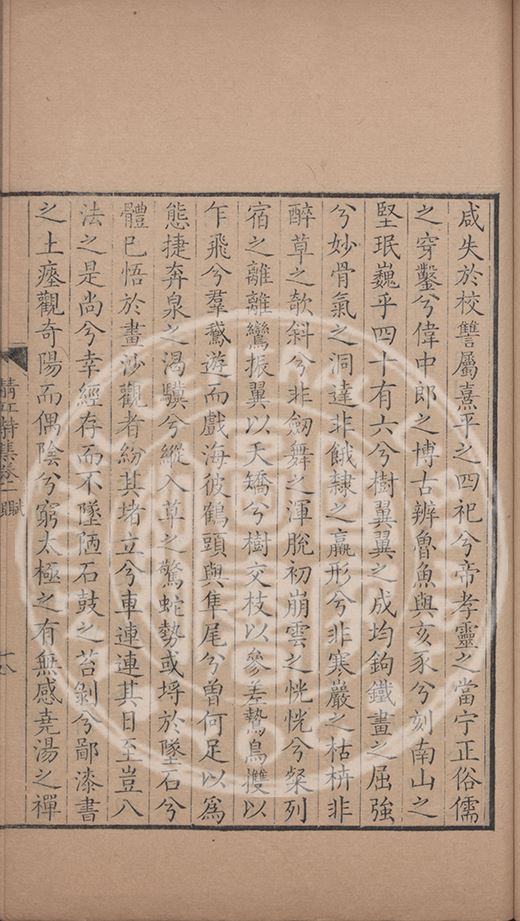 咸失於校讐屬熹平之四祀兮帝孝靈之當宁正俗儒
之穿鑿兮偉中郎之博古辨魯魚與亥豕兮刻南山之
堅珉巍乎四十有六兮樹翼翼之成均鉤鐵畫之屈強
兮妙骨氣之洞達非餓隸之羸形兮非寒巖之枯枿非
醉草之欹斜兮非劒舞之渾脫初崩雲之恍恍兮粲列
宿之離離鸞振翼以夭矯兮樹交枝以參差鷙鳥攫以
乍飛兮羣鵞遊而戲海彼鶴頭與隼尾兮曽何足以為
態捷奔泉之渴驥兮縱入草之驚蛇勢或埓於墜石兮
體已悟於畫沙觀者紛其堵立兮車連連其日至豈八
法之是尚兮幸經存而不墜陋石鼓之苔剝兮鄙漆書
之土瘞觀奇陽而偶陰兮窮太極之有無感堯湯之禪
清江詩集卷一 賦